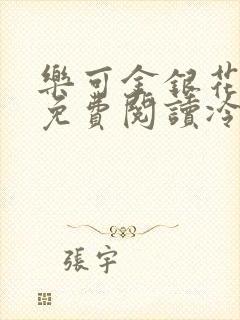 樂可金銀花
免費閱讀冷
張宇